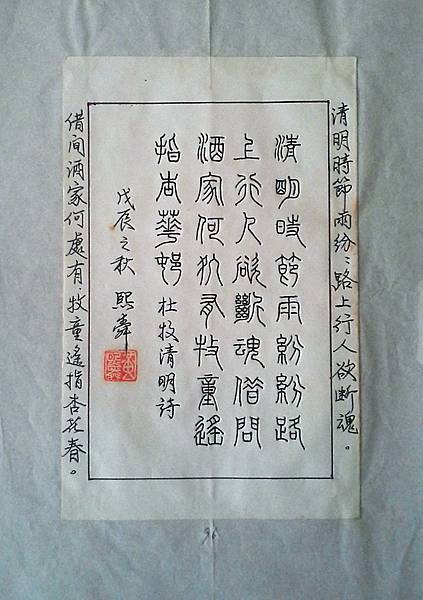 清明時節雨紛〻路上行人欲断魂。
清明時節雨紛紛路
上行人欲斷魂借問
酒家何処有牧童遙
指杏華邨 杜牧清明詩
戊辰之秋 熙舜
借问酒家何處有.牧童遙指杏花春。